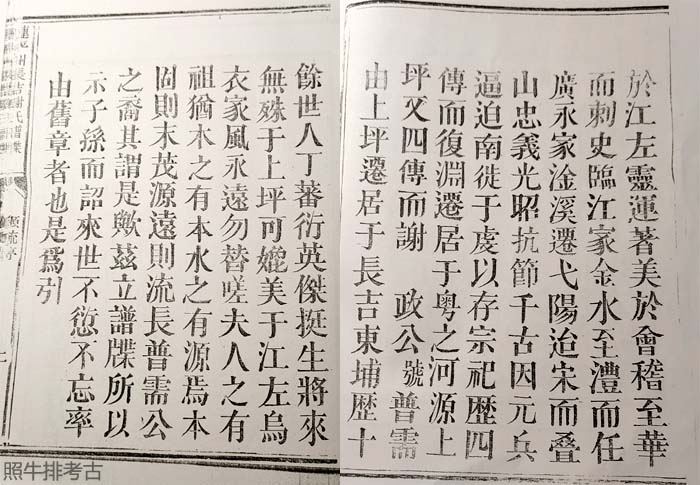 於江左靈運著美於會稽至華
而刺史臨江家金水至澧而任
廣永家淦溪遷弋陽迨宋而叠
山忠義光昭抗節千古因元兵
逼迫南徙于虔以存宗祀歷四
傳而復淵遷居于粤之河源上
坪又四傳而謝 政公號普需
由上坪遷居于長吉東埔歷十
餘世人丁蕃衍英傑挺生將來
無殊于上坪可媲美于江左烏
衣家風永遠勿替嗟夫人之有
祖猶木之有本水之有源焉本
固則末茂源遠則流長普需公
之裔其謂是歟茲立譜牒所以
示子孫而詔來世不愆不忘率
由舊章者也是爲引
長吉謝氏譜牒
照牛排考古